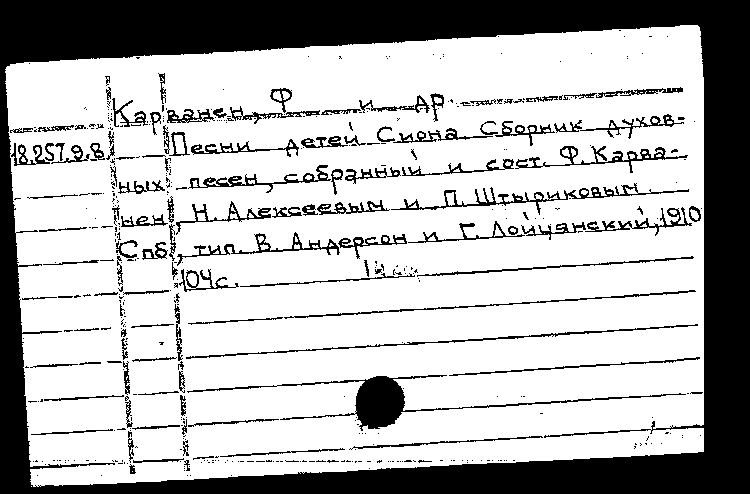 Карванен, Ф и др.
18.257.9.8. Песни детей Сиона. Сборник духов-
ных песен, собранный и сост. Ф. Карва-
нен, Н. Алексеевым и П. Штыриковым.
Спб, тип. В. Андерсон и Г. Лойцянский, 1910
104с.